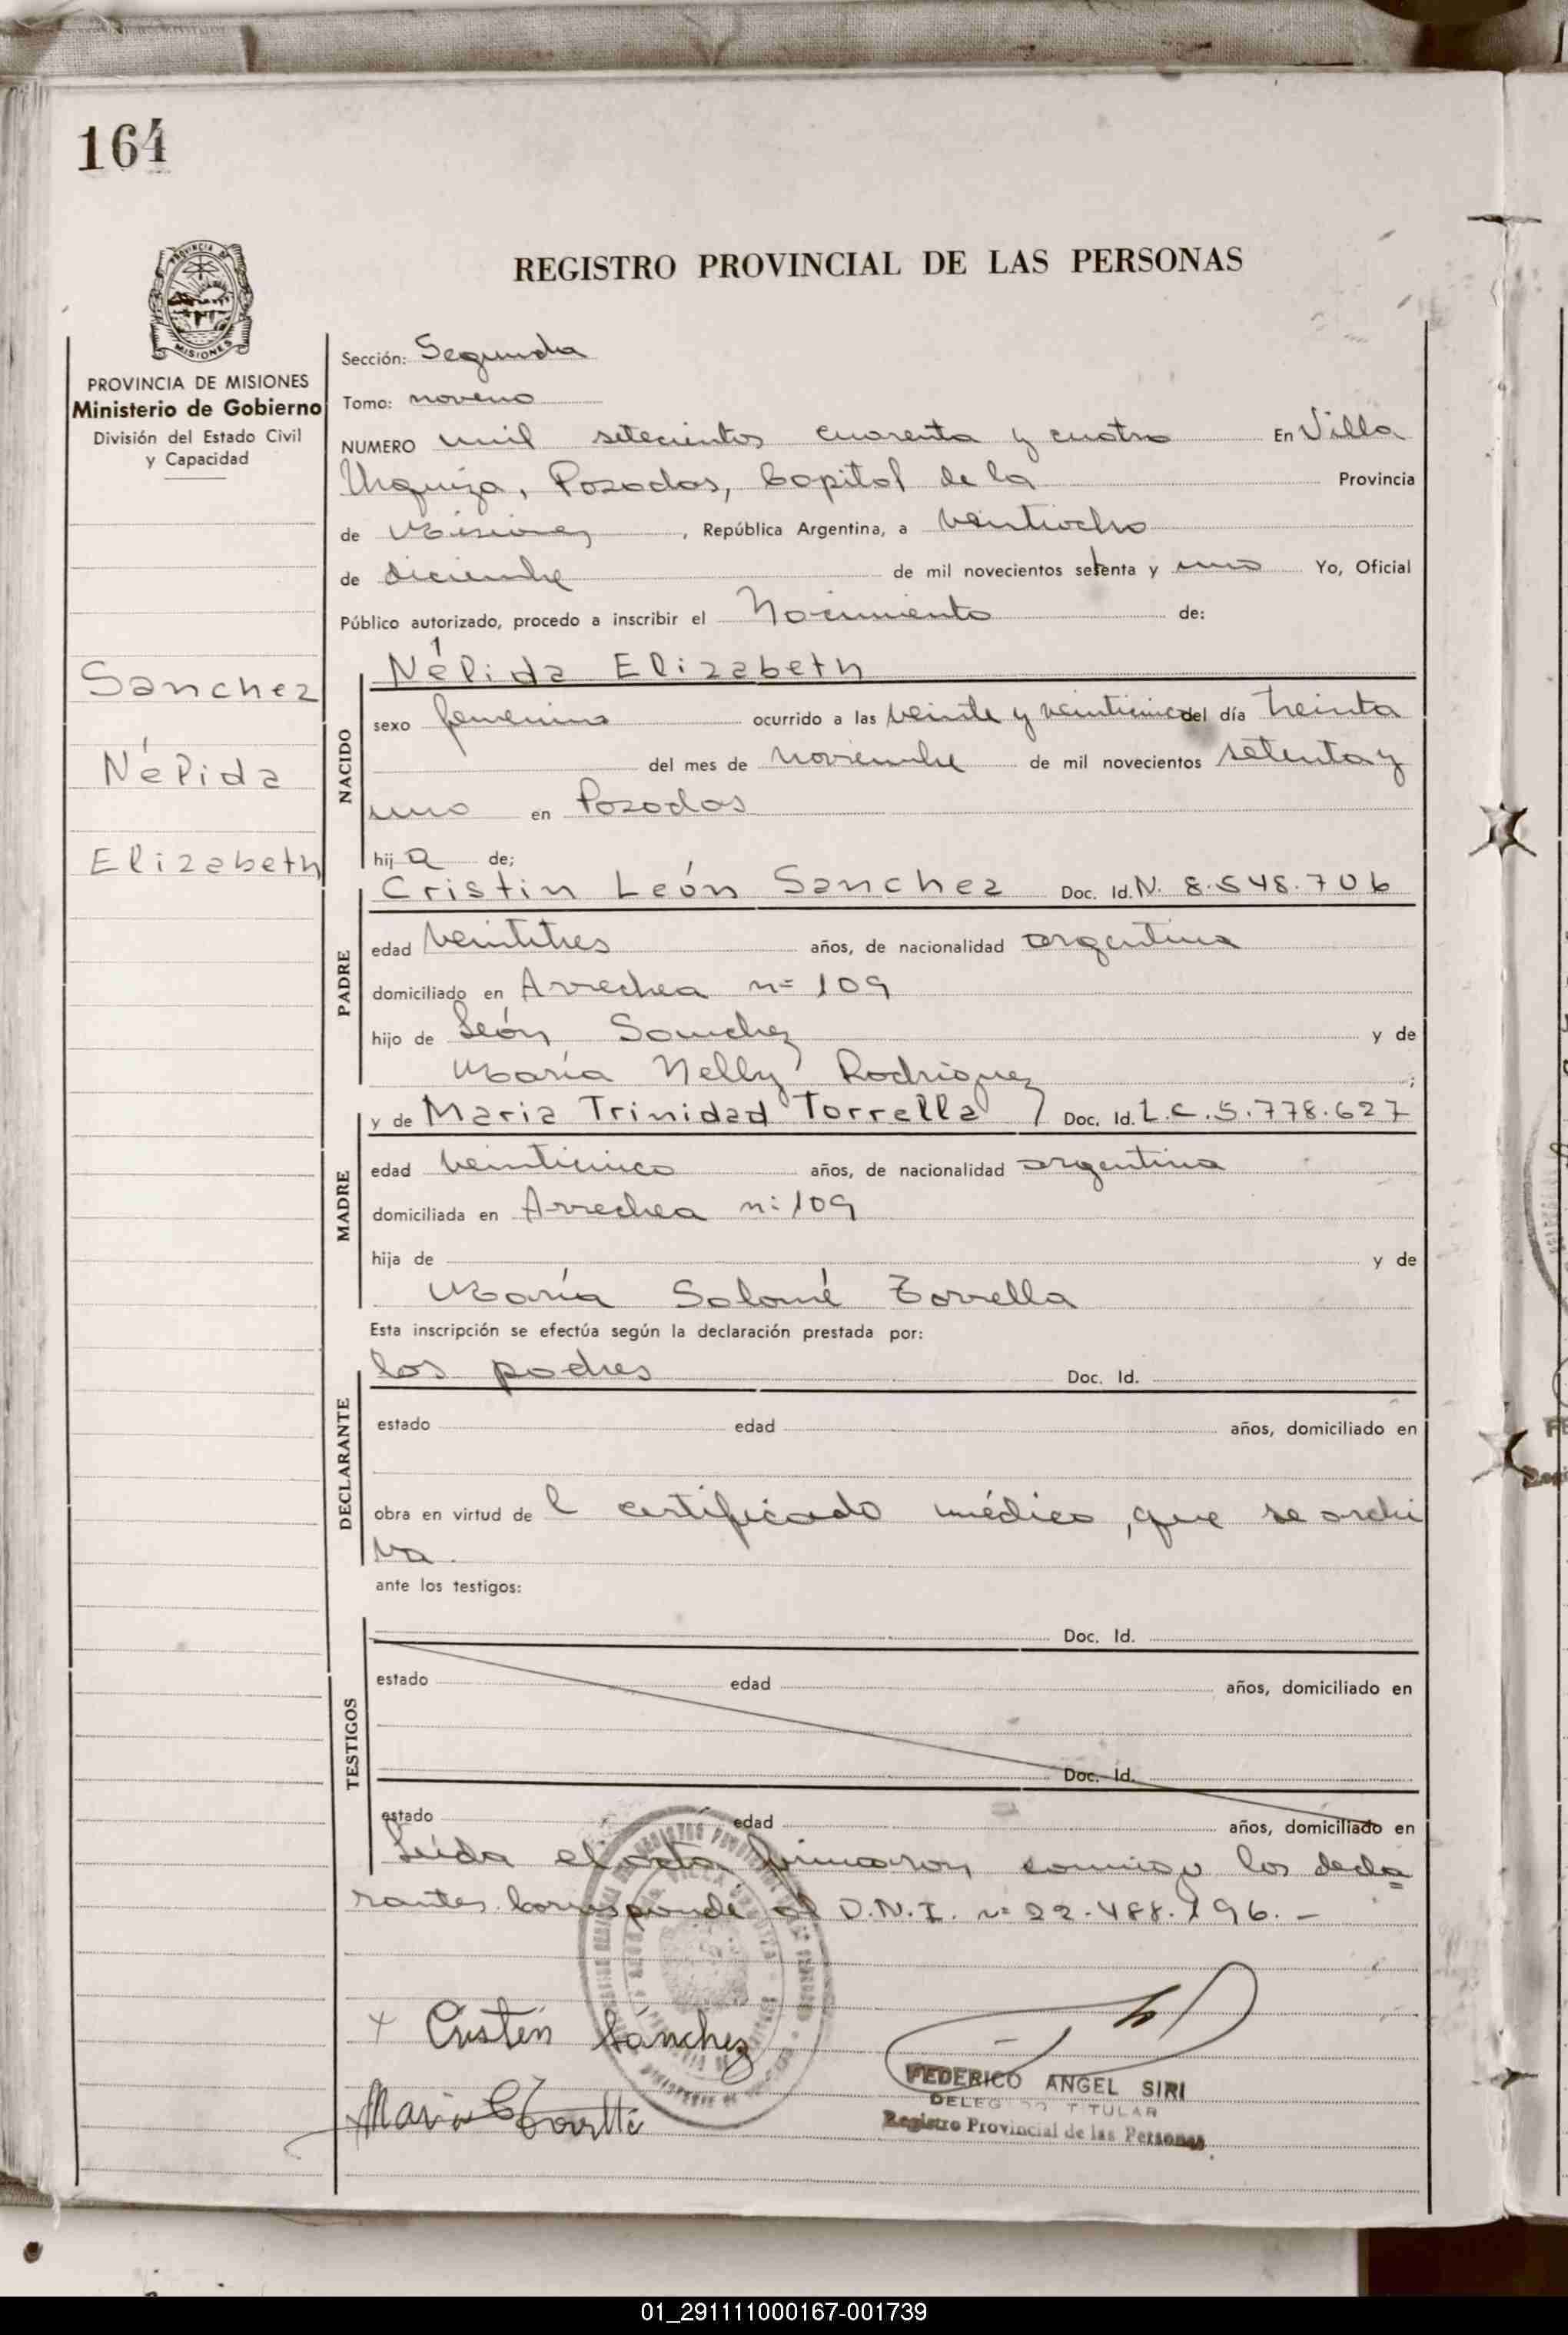 164
REGISTRO PROVINCIAL DE LAS PERSONAS
PROVINCIA DE MISIONES
Ministerio de Gobierno
División del Estado Civil
y Capacidad
Sanchez
Nélida
Elizabeth
Sección: Segunda
Tomo: noveno
NUMERO mil setecientos cuarenta y cuatro En Villa
Urquiza, Posadas, Capital de la Provincia
de Misiones, República Argentina, a veintiocho
de diciembre de mil novecientos setenta y uno Yo, Oficial
Público autorizado, procedo a inscribir el Nacimiento de:
NACIDO
Nélida Elizabeth
sexo femenino ocurrido a las veinte y veinticinco del día treinta
del mes de noviembre de mil novecientos setenta y
uno en Posadas
hija de;
PADRE
Cristin León Sanchez Doc. Id. N. 8.548.706
edad veintitres años, de nacionalidad argentina
domiciliado en Arrechea nº 109
hijo de León Sanchez y de
María Nelly Rodriguez ;
MADRE
y de Maria Trinidad Torrella Doc. Id. L.C.5.778.627
edad veinticinco años, de nacionalidad argentina
domiciliada en Arrechea nº 109
hija de y de
María Salomé Torrella
Esta inscripción se efectúa según la declaración prestada por:
DECLARANTE
los padres Doc. Id.
estado edad años, domiciliado en
obra en virtud de l certificado médico, que se archi
va.
ante los testigos:
TESTIGOS
Doc. Id.
estado edad años, domiciliado en
Doc. Id.
estado edad años, domiciliado en
Leída el acta firmaron conmigo los decla
rantes. Corresponde al D.N.I. nº 22.488.196. -
x Cristin Sánchez
FEDERICO ANGEL SIRI
DELEGADO TITULAR
Registro Provincial de las Personas
01_291111000167-001739